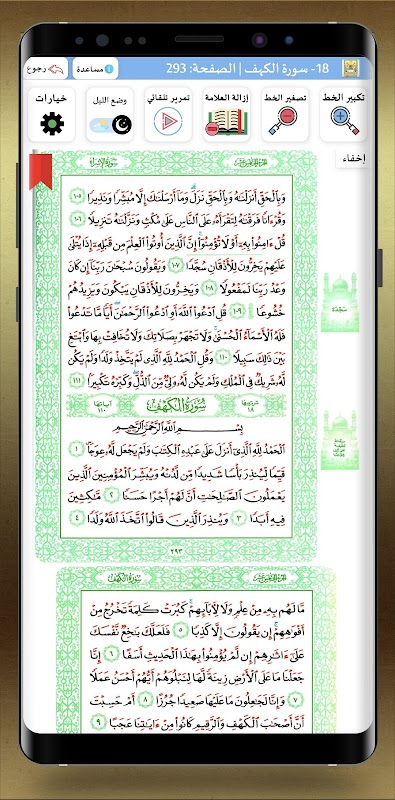 18- سورة الكهف | الصفحة: 293
مساعدة
رجوع
تكبير الخط
تصغير الخط
إزالة العلامة
تمرير تلقائي
وضع الليل
خيارات
إخفاء
سُورَةُ الإِسْرَاءِ
وَبِالْحَقِّ أَنزَلْنَاهُ وَبِالْحَقِّ نَزَلَ ۗ وَمَا أَرْسَلْنَاكَ إِلَّا مُبَشِّرًا وَنَذِيرًا ١٠٥
وَقُرْءَانًا فَرَقْنَاهُ لِتَقْرَأَهُۥ عَلَى النَّاسِ عَلَىٰ مُكْثٍ وَنَزَّلْنَاهُ تَنزِيلًا ١٠٦
قُلْ ءَامِنُوا بِهِۦٓ أَوْ لَا تُؤْمِنُوٓا ۚ إِنَّ الَّذِينَ أُوتُوا الْعِلْمَ مِن قَبْلِهِۦٓ إِذَا يُتْلَىٰ
عَلَيْهِمْ يَخِرُّونَ لِلْأَذْقَانِ سُجَّدًا ١٠٧ وَيَقُولُونَ سُبْحَٰنَ رَبِّنَآ إِن كَانَ
وَعْدُ رَبِّنَا لَمَفْعُولًا ١٠٨ وَيَخِرُّونَ لِلْأَذْقَانِ يَبْكُونَ وَيَزِيدُهُمْ
خُشُوعًا ١٠٩ قُلِ ادْعُوا اللَّهَ أَوِ ادْعُوا الرَّحْمَٰنَ ۖ أَيًّا مَّا تَدْعُوا
فَلَهُ الْأَسْمَآءُ الْحُسْنَىٰ ۚ وَلَا تَجْهَرْ بِصَلَاتِكَ وَلَا تُخَافِتْ بِهَا وَابْتَغِ
بَيْنَ ذَٰلِكَ سَبِيلًا ١١٠ وَقُلِ الْحَمْدُ لِلَّهِ الَّذِى لَمْ يَتَّخِذْ وَلَدًا وَلَمْ يَكُن
لَّهُۥ شَرِيكٌ فِى الْمُلْكِ وَلَمْ يَكُن لَّهُۥ وَلِىٌّ مِّنَ الذُّلِّ ۖ وَكَبِّرْهُ تَكْبِيرًا ١١١
ترتيبها ١٨ سُورَةُ الكَهْفِ آياتها ١١٠
بِسْمِ اللَّهِ الرَّحْمَٰنِ الرَّحِيمِ
الْحَمْدُ لِلَّهِ الَّذِىٓ أَنزَلَ عَلَىٰ عَبْدِهِ الْكِتَٰبَ وَلَمْ يَجْعَل لَّهُۥ عِوَجًا ١
قَيِّمًا لِّيُنذِرَ بَأْسًا شَدِيدًا مِّن لَّدُنْهُ وَيُبَشِّرَ الْمُؤْمِنِينَ الَّذِينَ
يَعْمَلُونَ الصَّٰلِحَٰتِ أَنَّ لَهُمْ أَجْرًا حَسَنًا ٢ مَّٰكِثِينَ
فِيهِ أَبَدًا ٣ وَيُنذِرَ الَّذِينَ قَالُوا اتَّخَذَ اللَّهُ وَلَدًا ٤
٢٩٣
سُورَةُ الكَهْفِ
مَّا لَهُم بِهِۦ مِنْ عِلْمٍ وَلَا لِءَابَآئِهِمْ ۚ كَبُرَتْ كَلِمَةً تَخْرُجُ مِنْ
أَفْوَٰهِهِمْ ۚ إِن يَقُولُونَ إِلَّا كَذِبًا ٥ فَلَعَلَّكَ بَٰخِعٌ نَّفْسَكَ
عَلَىٰٓ ءَاثَٰرِهِمْ إِن لَّمْ يُؤْمِنُوا بِهَٰذَا الْحَدِيثِ أَسَفًا ٦ إِنَّا
جَعَلْنَا مَا عَلَى الْأَرْضِ زِينَةً لَّهَا لِنَبْلُوَهُمْ أَيُّهُمْ أَحْسَنُ عَمَلًا
٧ وَإِنَّا لَجَٰعِلُونَ مَا عَلَيْهَا صَعِيدًا جُرُزًا ٨ أَمْ حَسِبْتَ
أَنَّ أَصْحَٰبَ الْكَهْفِ وَالرَّقِيمِ كَانُوا مِنْ ءَايَٰتِنَا عَجَبًا ٩
سَجْدَة